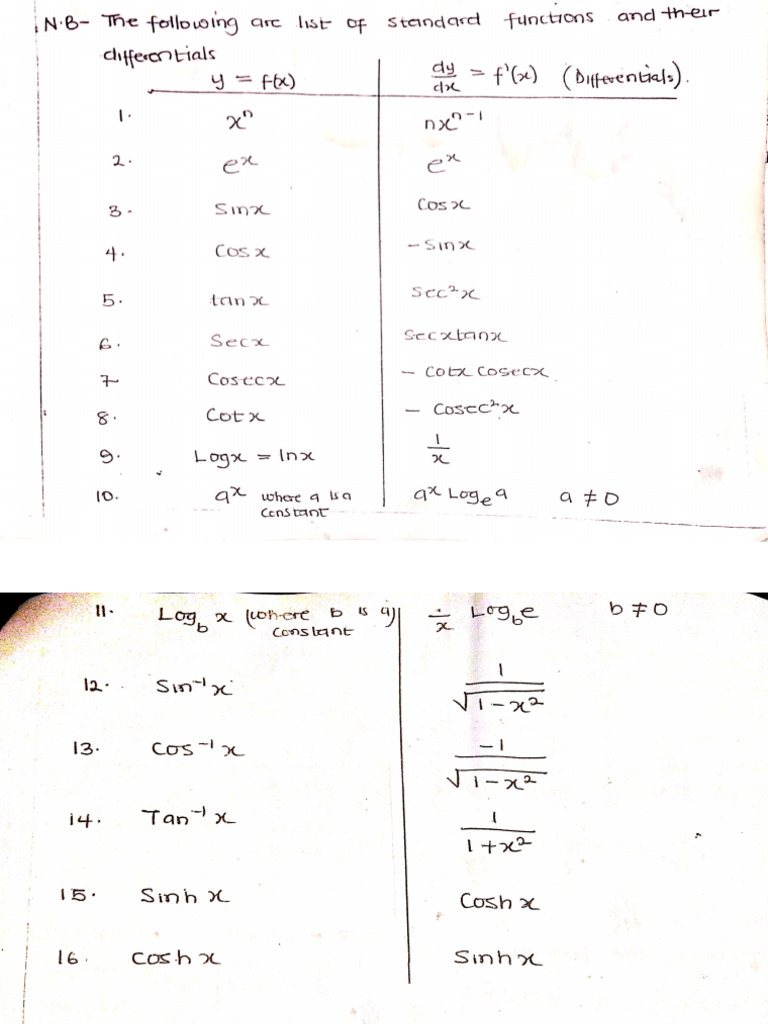 N.B- The following are list of standard functions and their
differentials
y = f(x) dy/dx = f'(x) (Differentials).
1. xⁿ nxⁿ⁻¹
2. eˣ eˣ
3. Sinx Cosx
4. Cosx -Sinx
5. tanx Sec²x
6. Secx Secxtanx
7 Cosecx - Cotx Cosecx
8. Cotx - Cosec²x
9. Logx = lnx 1/x
10. aˣ where a is a constant aˣ Logₑa a ≠ 0
11. Log_b x (where b is a constant) 1/x Log_b e b ≠ 0
12. Sin⁻¹x 1/√(1-x²)
13. Cos⁻¹x -1/√(1-x²)
14. Tan⁻¹x 1/(1+x²)
15. Sinhx Coshx
16. Coshx Sinhx